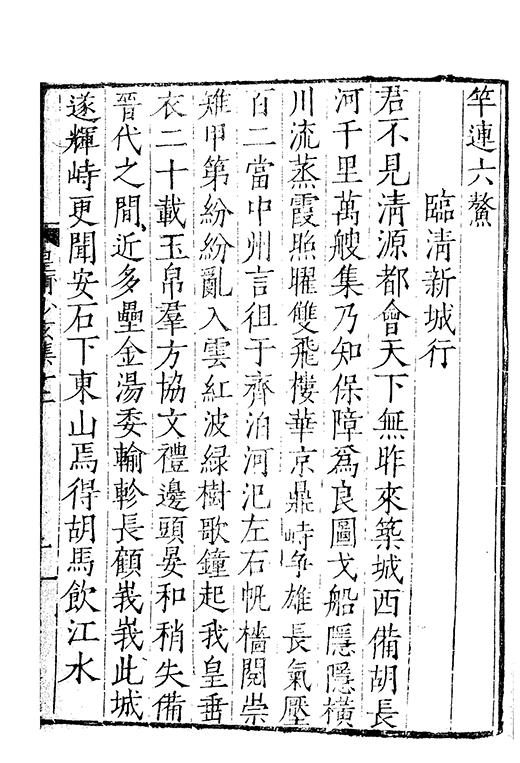 竿連六鰲
臨清新城行
君不見清源都會天下無昨來築城西備胡長
河千里萬艘集乃知保障爲良圖戈船隱隱橫
川流蒸霞照曜雙飛樓華京鼎峙爭雄長氣壓
百二當中州言徂于齊泊河汜左右帆檣閱崇
雉甲第紛紛亂入雲紅波綠樹歌鐘起我皇垂
衣二十載玉帛羣方協文禮邊頭晏和稍失備
晉代之間近多壘金湯委輸軫長顧峩峩此城
遂輝峙更聞安石下東山焉得胡馬飲江水